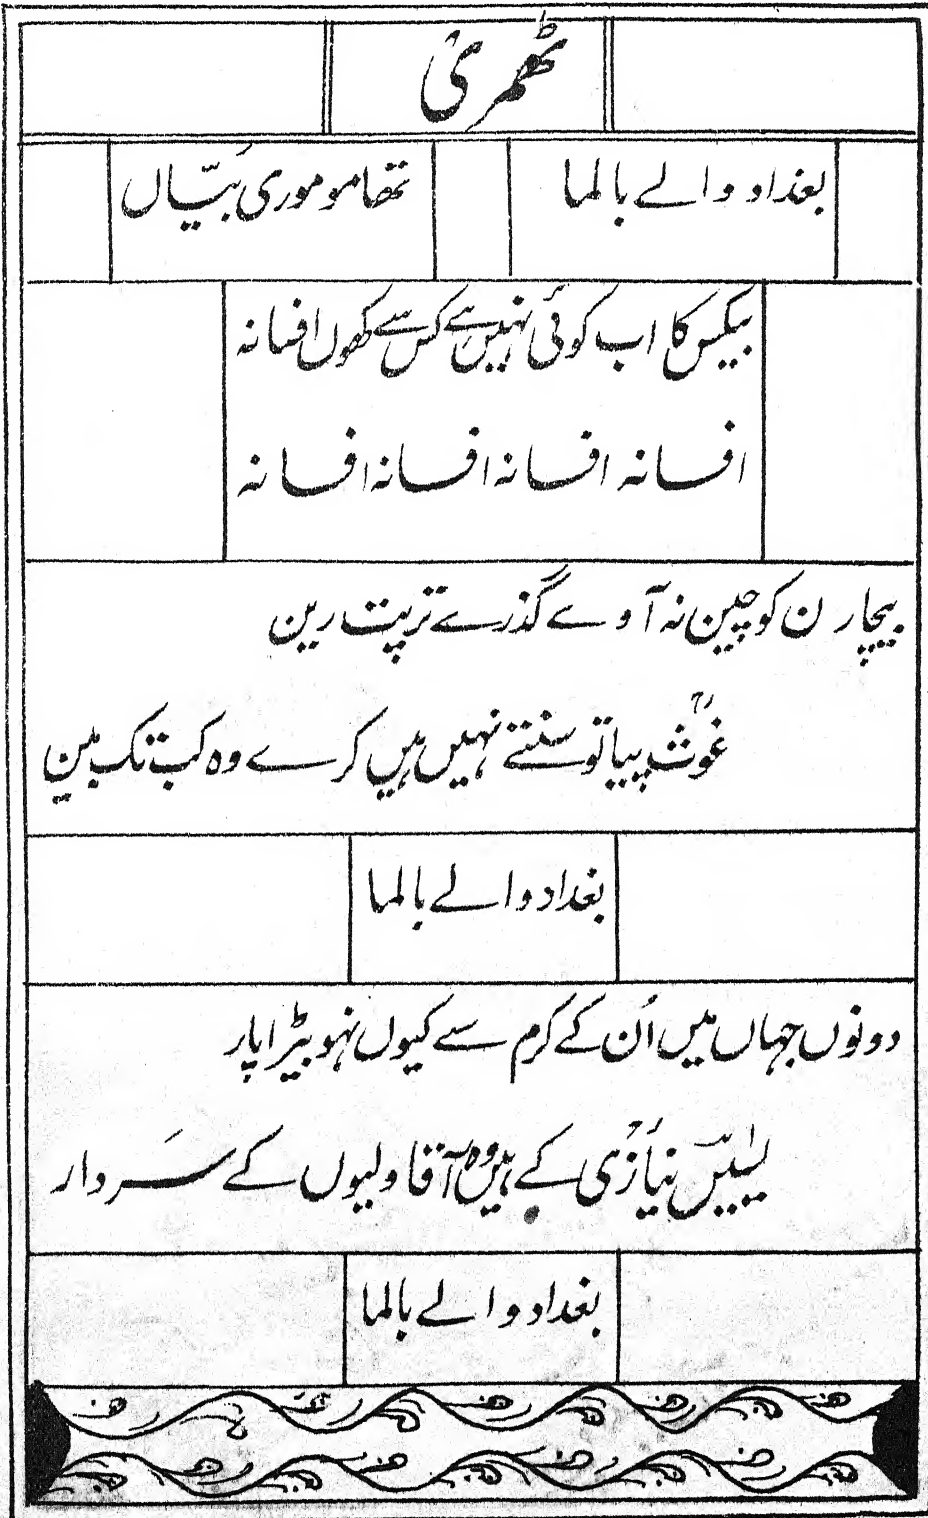 ٹھمری
بغداد والے بالما تھامو موری بیّاں
بیکس کا اب کوئی نہیں ہے کس سے کھوں افسانہ
افسانہ افسانہ افسانہ افسانہ
بیچارن کو چین نہ آوے گذرے تڑپت رین
غوثؓ پیا تو سنتے نہیں ہیں کرے وہ کب تک بین
بغداد والے بالما
دونوں جہاں میں اُن کے کرم سے کیوں نہو بیڑا پار
یٰسینؔ نیازیؒ کے ہیں وہ آقا ولیوں کے سَردار
بغداد والے بالما